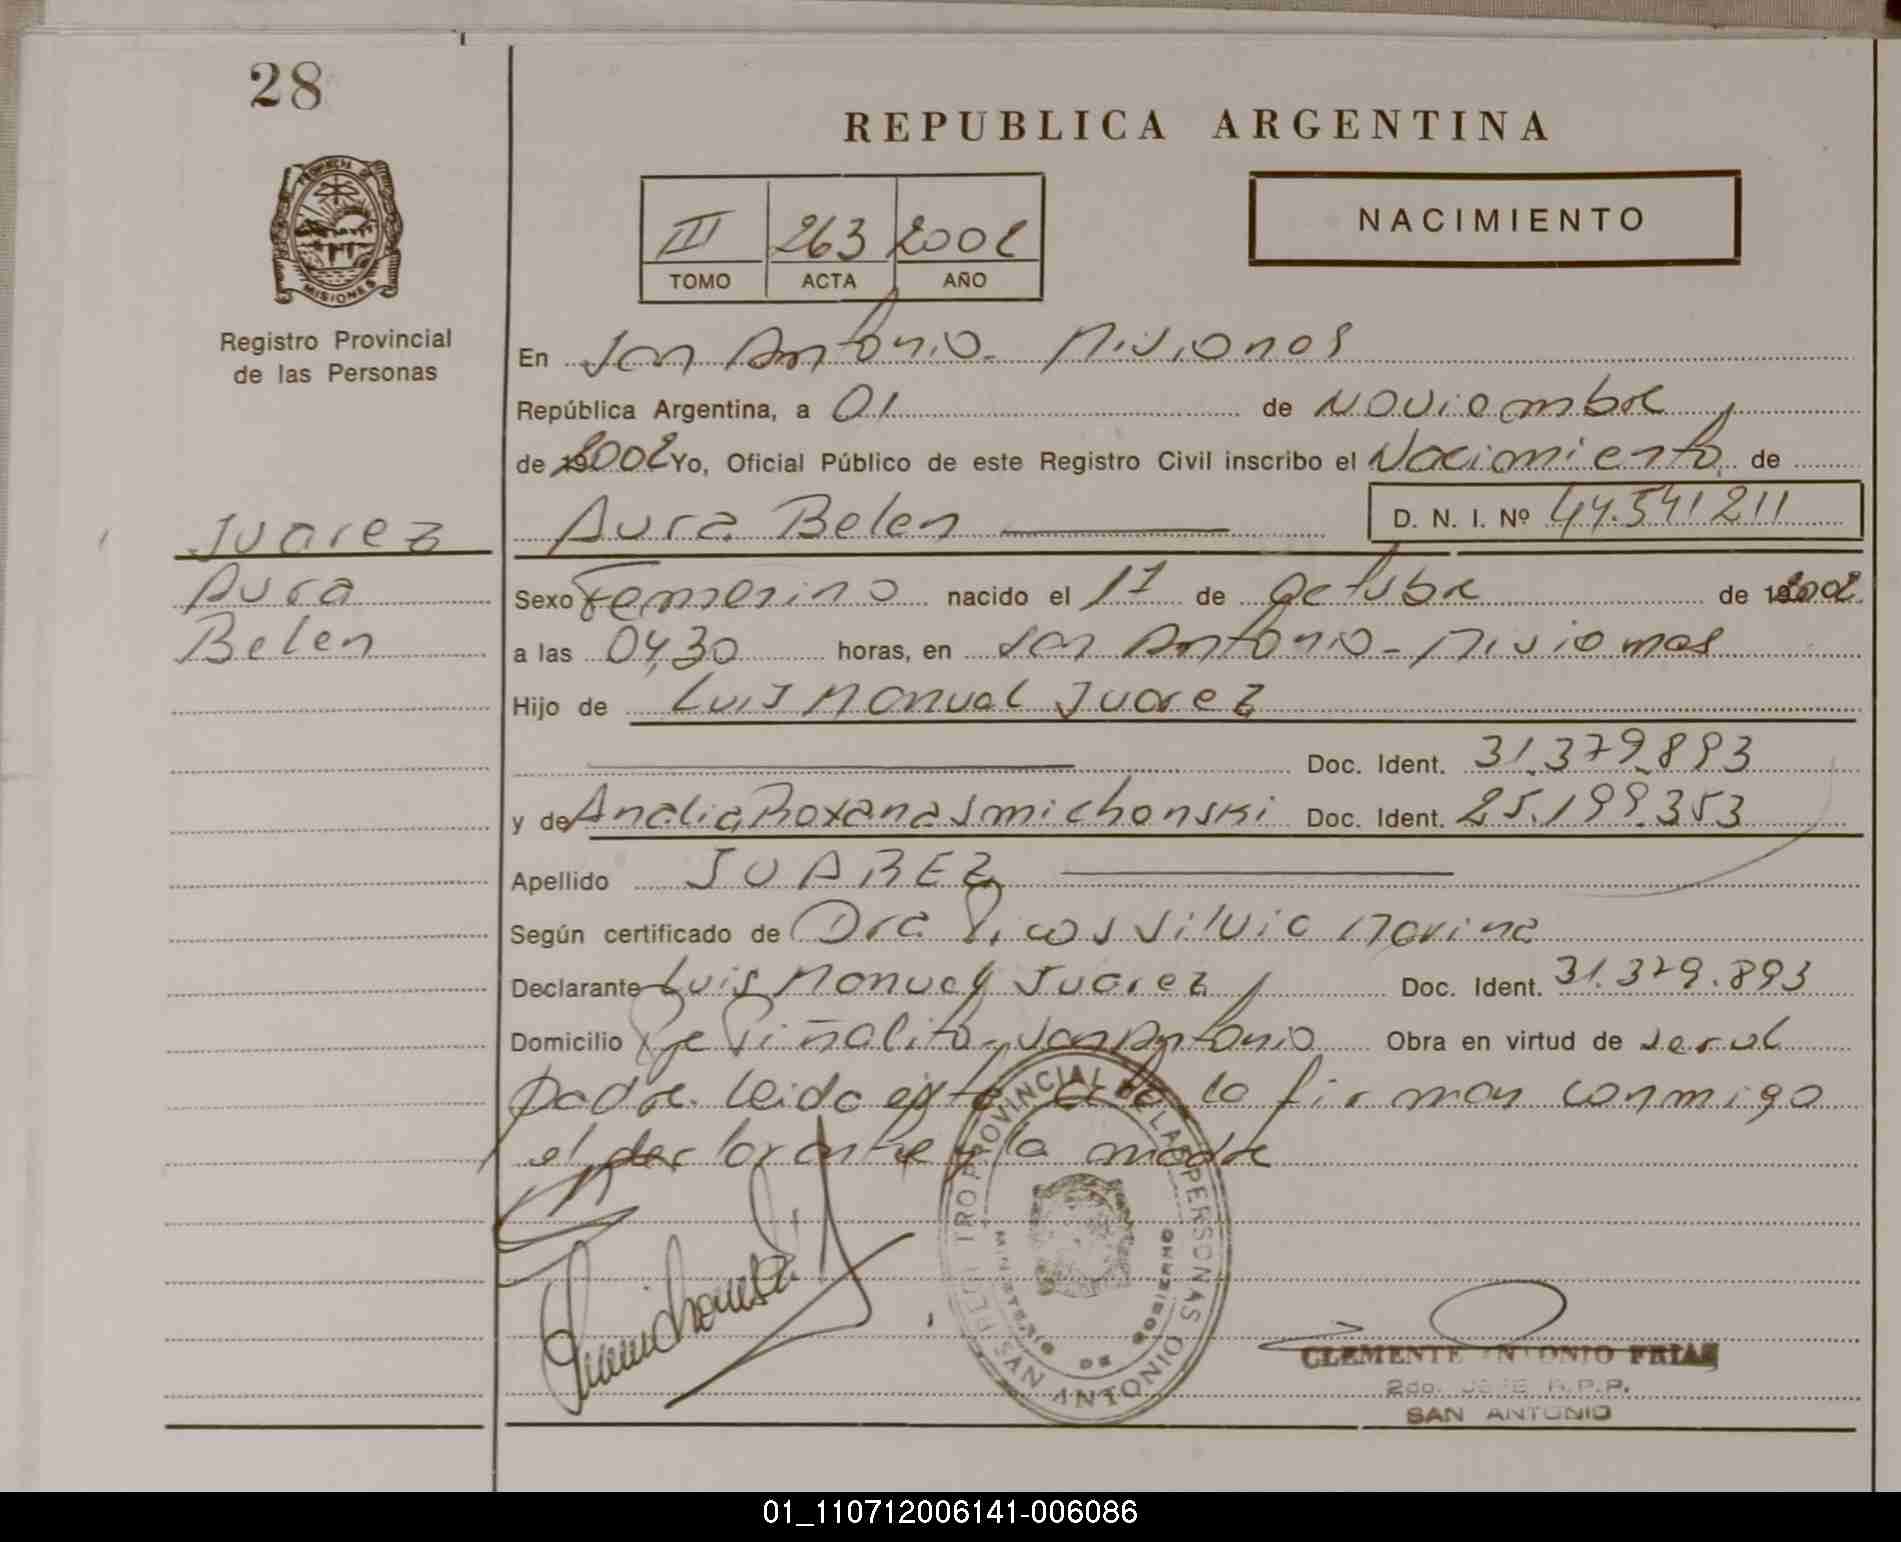 28
REPUBLICA ARGENTINA
NACIMIENTO
III 263 2002
TOMO ACTA AÑO
PROVINCIA DE
MISIONES
Registro Provincial
de las Personas
En San Antonio - Misiones
República Argentina, a 01 de Noviembre
de 2002 Yo, Oficial Público de este Registro Civil inscribo el Nacimiento de
Juarez
Aura Belen
D. N. I. Nº 44.541211
Aura
Sexo Femenino nacido el 17 de Octubre de 2002
Belen
a las 04,30 horas, en San Antonio - Misiones
Hijo de Luis Manuel Juarez
Doc. Ident. 31.379.893
y de Analia Roxana Smichonski Doc. Ident. 25.199.353
Apellido JUAREZ
Según certificado de Dra Silvia Marina
Declarante Luis Manuel Juarez Doc. Ident. 31.379.893
Domicilio Piñalito - San Antonio Obra en virtud de ser el
padre. leida esta acta la firman conmigo
el declarante y la madre
REGISTRO PROVINCIAL DE LAS PERSONAS
MINISTERIO DE GOBIERNO
SAN ANTONIO
CLEMENTE ANTONIO FRIAS
2do. JEFE R.P.P.
SAN ANTONIO
01_110712006141-006086